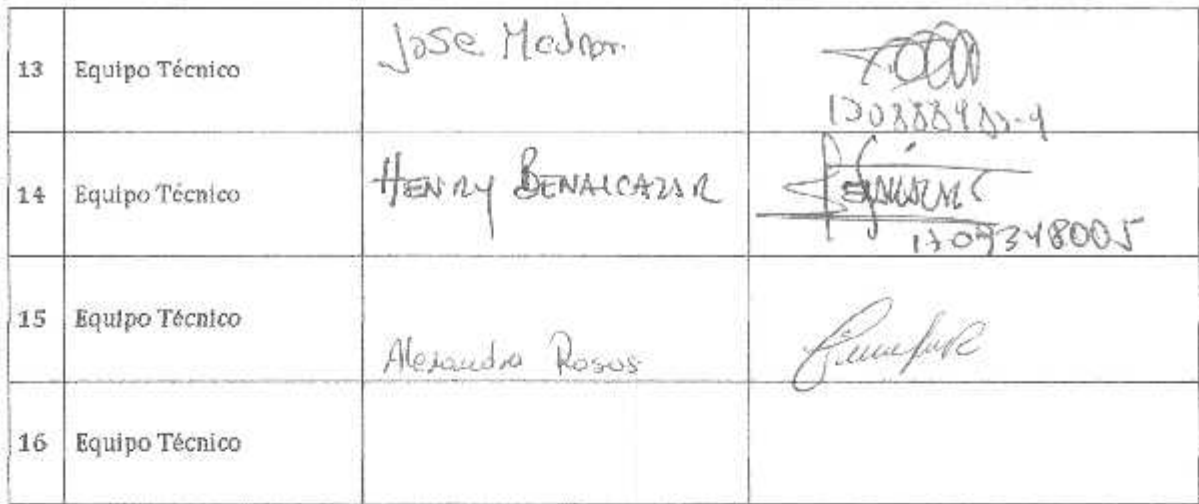 13 Equipo Técnico Jose
14 Equipo Técnico HENRY BENALCAZAR
1709348005
15 Equipo Técnico Alexandra Rosas
16 Equipo Técnico